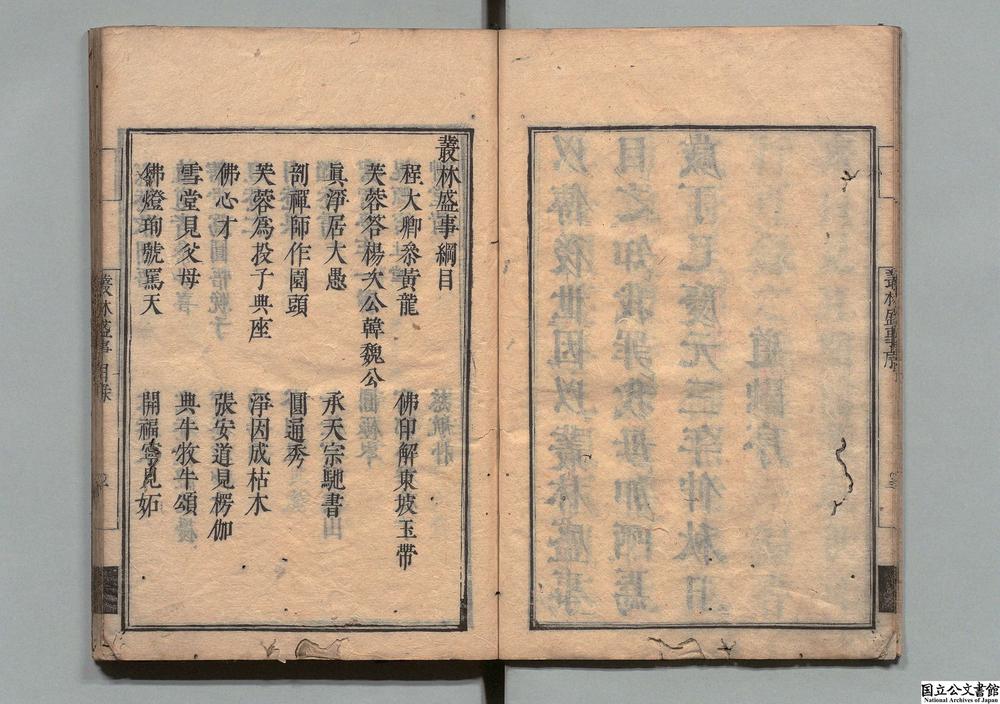 叢林盛事序
叢林盛事綱目
程大卿叅黃龍　佛印解東坡玉帶
芙蓉答楊次公韓魏公
眞淨居大愚　承天宗馳書
剖禪師作園頭　圓通秀
芙蓉爲投子典座　淨因成枯木
佛心才　張安道見楞伽
雪堂見父母　典牛牧牛頌
佛燈珣號罵天　開福寧見妬
叢林盛事目錄
国立公文書館
National Archives of Japan